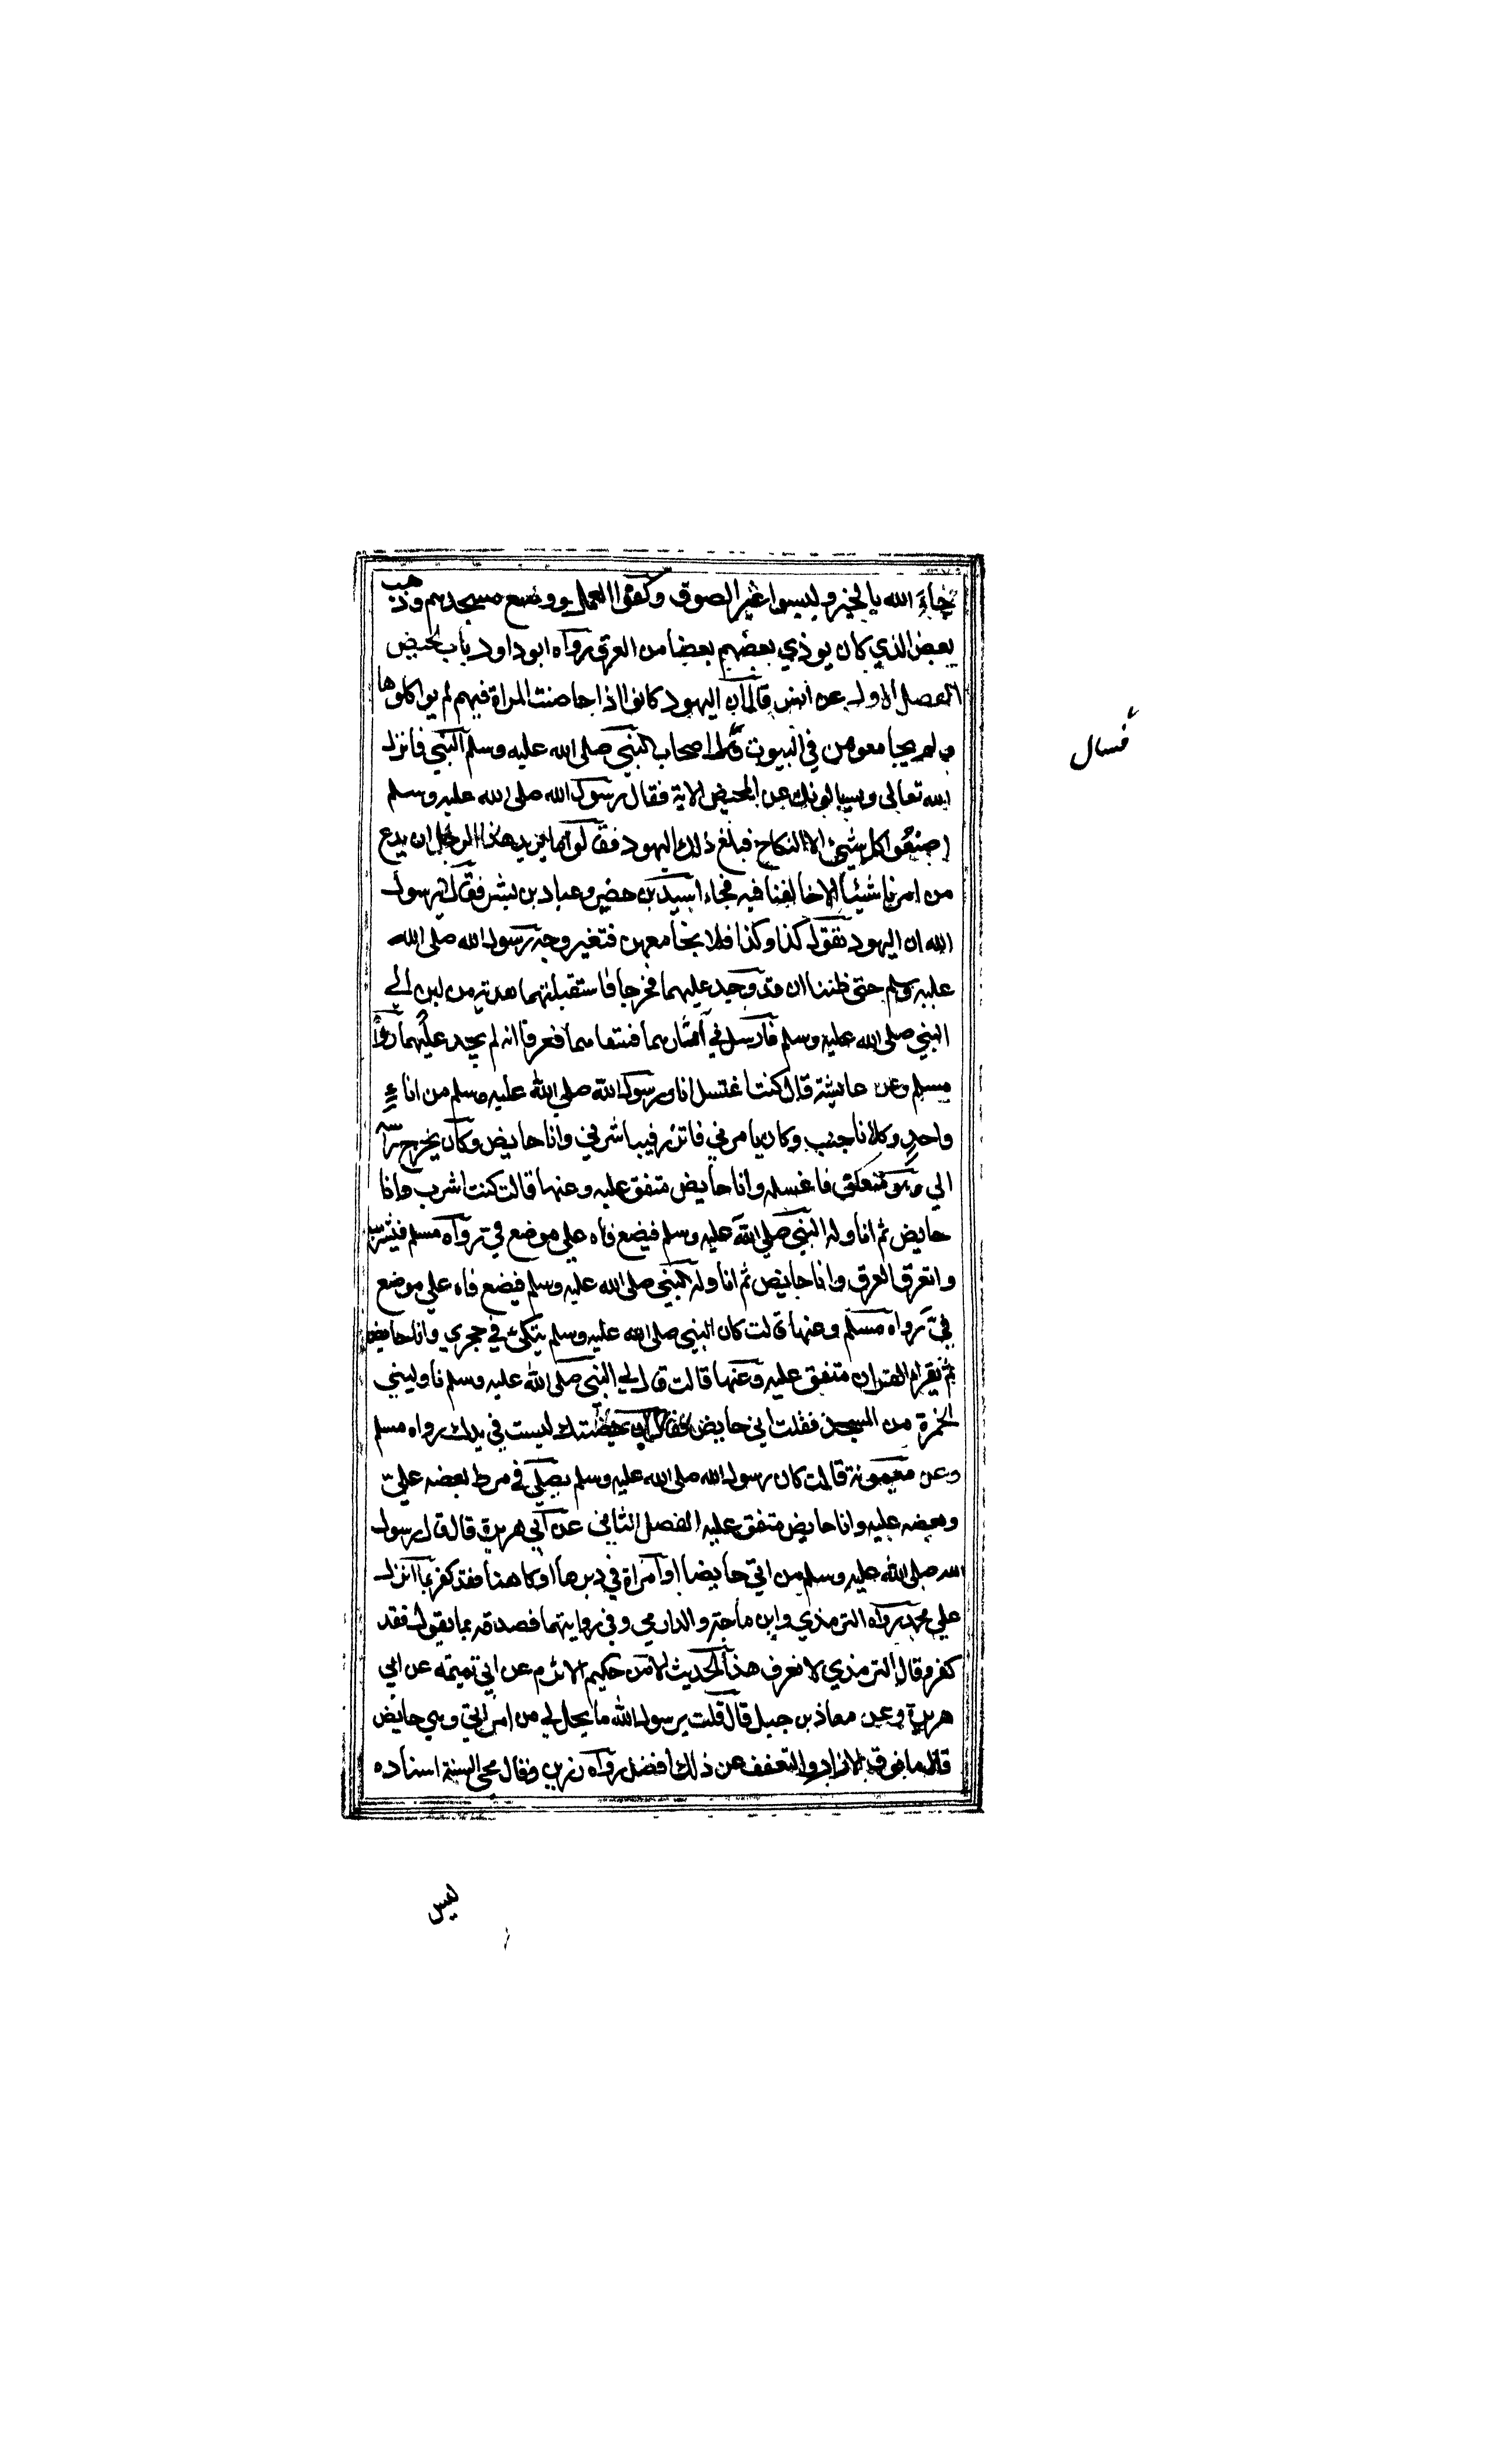 جاء الله بالخير ولبسوا غير الصوف وكفوا العمل ووضع مسجدهم وذهب
بعض الذي كان يوذي بعضهم بعضا من العرق رواه ابو داود باب الحيض
الفصل الاول عن انس قال ان اليهود كانوا اذا حاضت المراة فيهم لم يواكلوها
ولم يجامعوهن في البيوت اصحاب النبي صلى الله عليه وسلم النبي فانزل
فسال
الله تعالى ويسالونك عن المحيض الاية فقال رسول الله صلى الله عليه وسلم
اصنعوا كل شيئ الا النكاح فبلغ ذلك اليهود فقالوا ما يريد هذا الرجل ان يدع
من امرنا شيئا الا خالفنا فيه فجاء اسيد بن حضير وعباد بن بشر فقالا يرسول
الله ان اليهود تقول كذا وكذا فلا نجامعهن فتغير وجه رسول الله صلى الله
عليه وسلم حتى ظننا ان قد وجد عليهما فخرجا فاستقبلتهما هدية من لبن الي
النبي صلى الله عليه وسلم فارسل في اثارهما فسقاهما فعرفا انه لم يجد عليهما رواه
مسلم وعن عايشة قال كنت اغتسل انا ورسول الله صلى الله عليه وسلم من اناء
واحد وكلانا جنب وكان يامرني فاتزر فيباشرني وانا حايض وكان يخرج راسه
الي وهو معتكف فاغسله وانا حايض متفق عليه وعنها قالت كنت اشرب وانا
حايض ثم اناوله النبي صلى الله عليه وسلم فيضع فاه علي موضع في رواه مسلم فيشرب
واتعرق العرق وانا حايض ثم اناوله النبي صلى الله عليه وسلم فيضع فاه علي موضع
في رواه مسلم وعنها قالت كان النبي صلى الله عليه وسلم يتكئ في حجري وانا حايض
ثم يقرا القران متفق عليه وعنها قالت قال لي النبي صلى الله عليه وسلم ناوليني
الخمرة من المسجد فقلت اني حايض فقال ان حيضتك ليست في يدك رواه مسلم
وعن ميمونة قالت كان رسول الله صلى الله عليه وسلم يصلي في مرط بعضه علي
وبعضه عليه وانا حايض متفق عليه الفصل الثاني عن ابي هريرة قال قال رسول
الله صلى الله عليه وسلم من اتي حايضا او امراة في دبرها او كاهنا فقد كفر بما انزل
علي محمد رواه الترمذي وابن ماجة والدارمي وفي روايتهما فصدقه بما يقول فقد
كفر وقال الترمذي لا نعرف هذا الحديث الا من حكيم الاثرم عن ابي تميمة عن ابي
هريرة وعن معاذ بن جبل قال قلت يرسول الله ما يحل لي من امراتي وهي حايض
قال ما فوق الازار والتعفف عن ذلك افضل رواه رزين وقال محي السنة اسناده
ليس